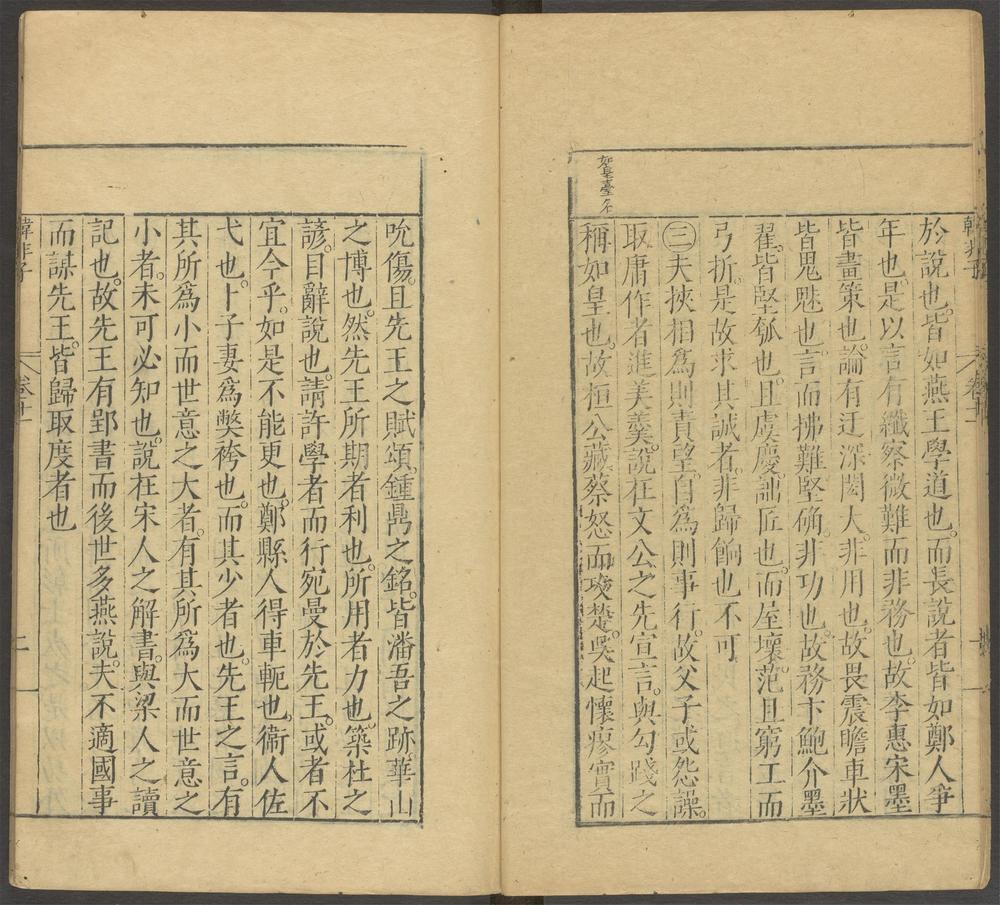 韓非子 卷十一
於說也皆如燕王學道也而長說者皆如鄭人爭
年也是以言有纖察微難而非務也故李惠宋墨
皆畫策也論有迂深閎大非用也故畏震瞻車狀
皆鬼魅也言而拂難堅确非功也故務卞鮑介墨
翟皆堅瓠也且虞慶詘匠也而屋壞范且窮工而
弓折是故求其誠者非歸餉也不可
㊂夫挾相爲則責望自爲則事行故父子或怨譟
取庸作者進美羹說在文公之先宣言與勾踐之
如皇臺名
稱如皇也故桓公藏蔡怒而攻楚吳起懷瘳實而
吮傷且先王之賦頌鍾鼎之銘皆潘吾之跡華山
之博也然先王所期者利也所用者力也築杜之
諺目辭說也請許學者而行宛曼於先王或者不
宜今乎如是不能更也鄭縣人得車軛也衞人佐
弋也卜子妻爲弊袴也而其少者也先王之言有
其所爲小而世意之大者有其所爲大而世意之
小者未可必知也說在宋人之解書與梁人之讀
記也故先王有郢書而後世多燕說夫不適國事
而謀先王皆歸取度者也
韓非子 卷十一 二